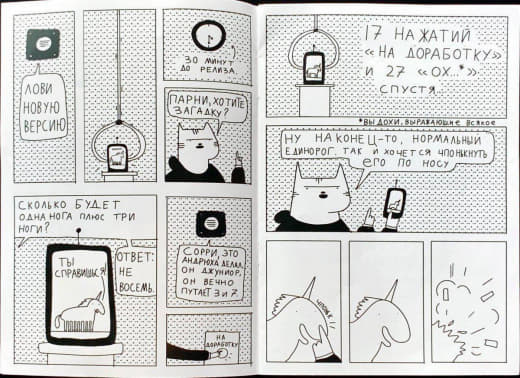 ЛОВИ
НОВУЮ
ВЕРСИЮ
30 МИНУТ
ДО
РЕЛИЗА.
ПАРНИ, ХОТИТЕ
ЗАГАДКУ?
СКОЛЬКО БУДЕТ
ОДНА НОГА ПЛЮС ТРИ
НОГИ?
ТЫ
СПРАВИШЬСЯ!
ОТВЕТ:
НЕ
ВОСЕМЬ.
СОРРИ, ЭТО
АНДРЮХА ДЕЛАЛ.
ОН ДЖУНИОР.
ОН ВЕЧНО
ПУТАЕТ 3 И 7.
НА
ДОРАБОТКУ
17 НАЖАТИЙ
«НА ДОРАБОТКУ»
И 27 «ОХ..*»
СПУСТЯ...
*ВЫДОХИ, ВЫРАЖАЮЩИЕ ВСЯКОЕ
НУ НАКОНЕЦ-ТО, НОРМАЛЬНЫЙ
ЕДИНОРОГ. ТАК И ХОЧЕТСЯ ЧПОНЬКНУТЬ
ЕГО ПО НОСУ